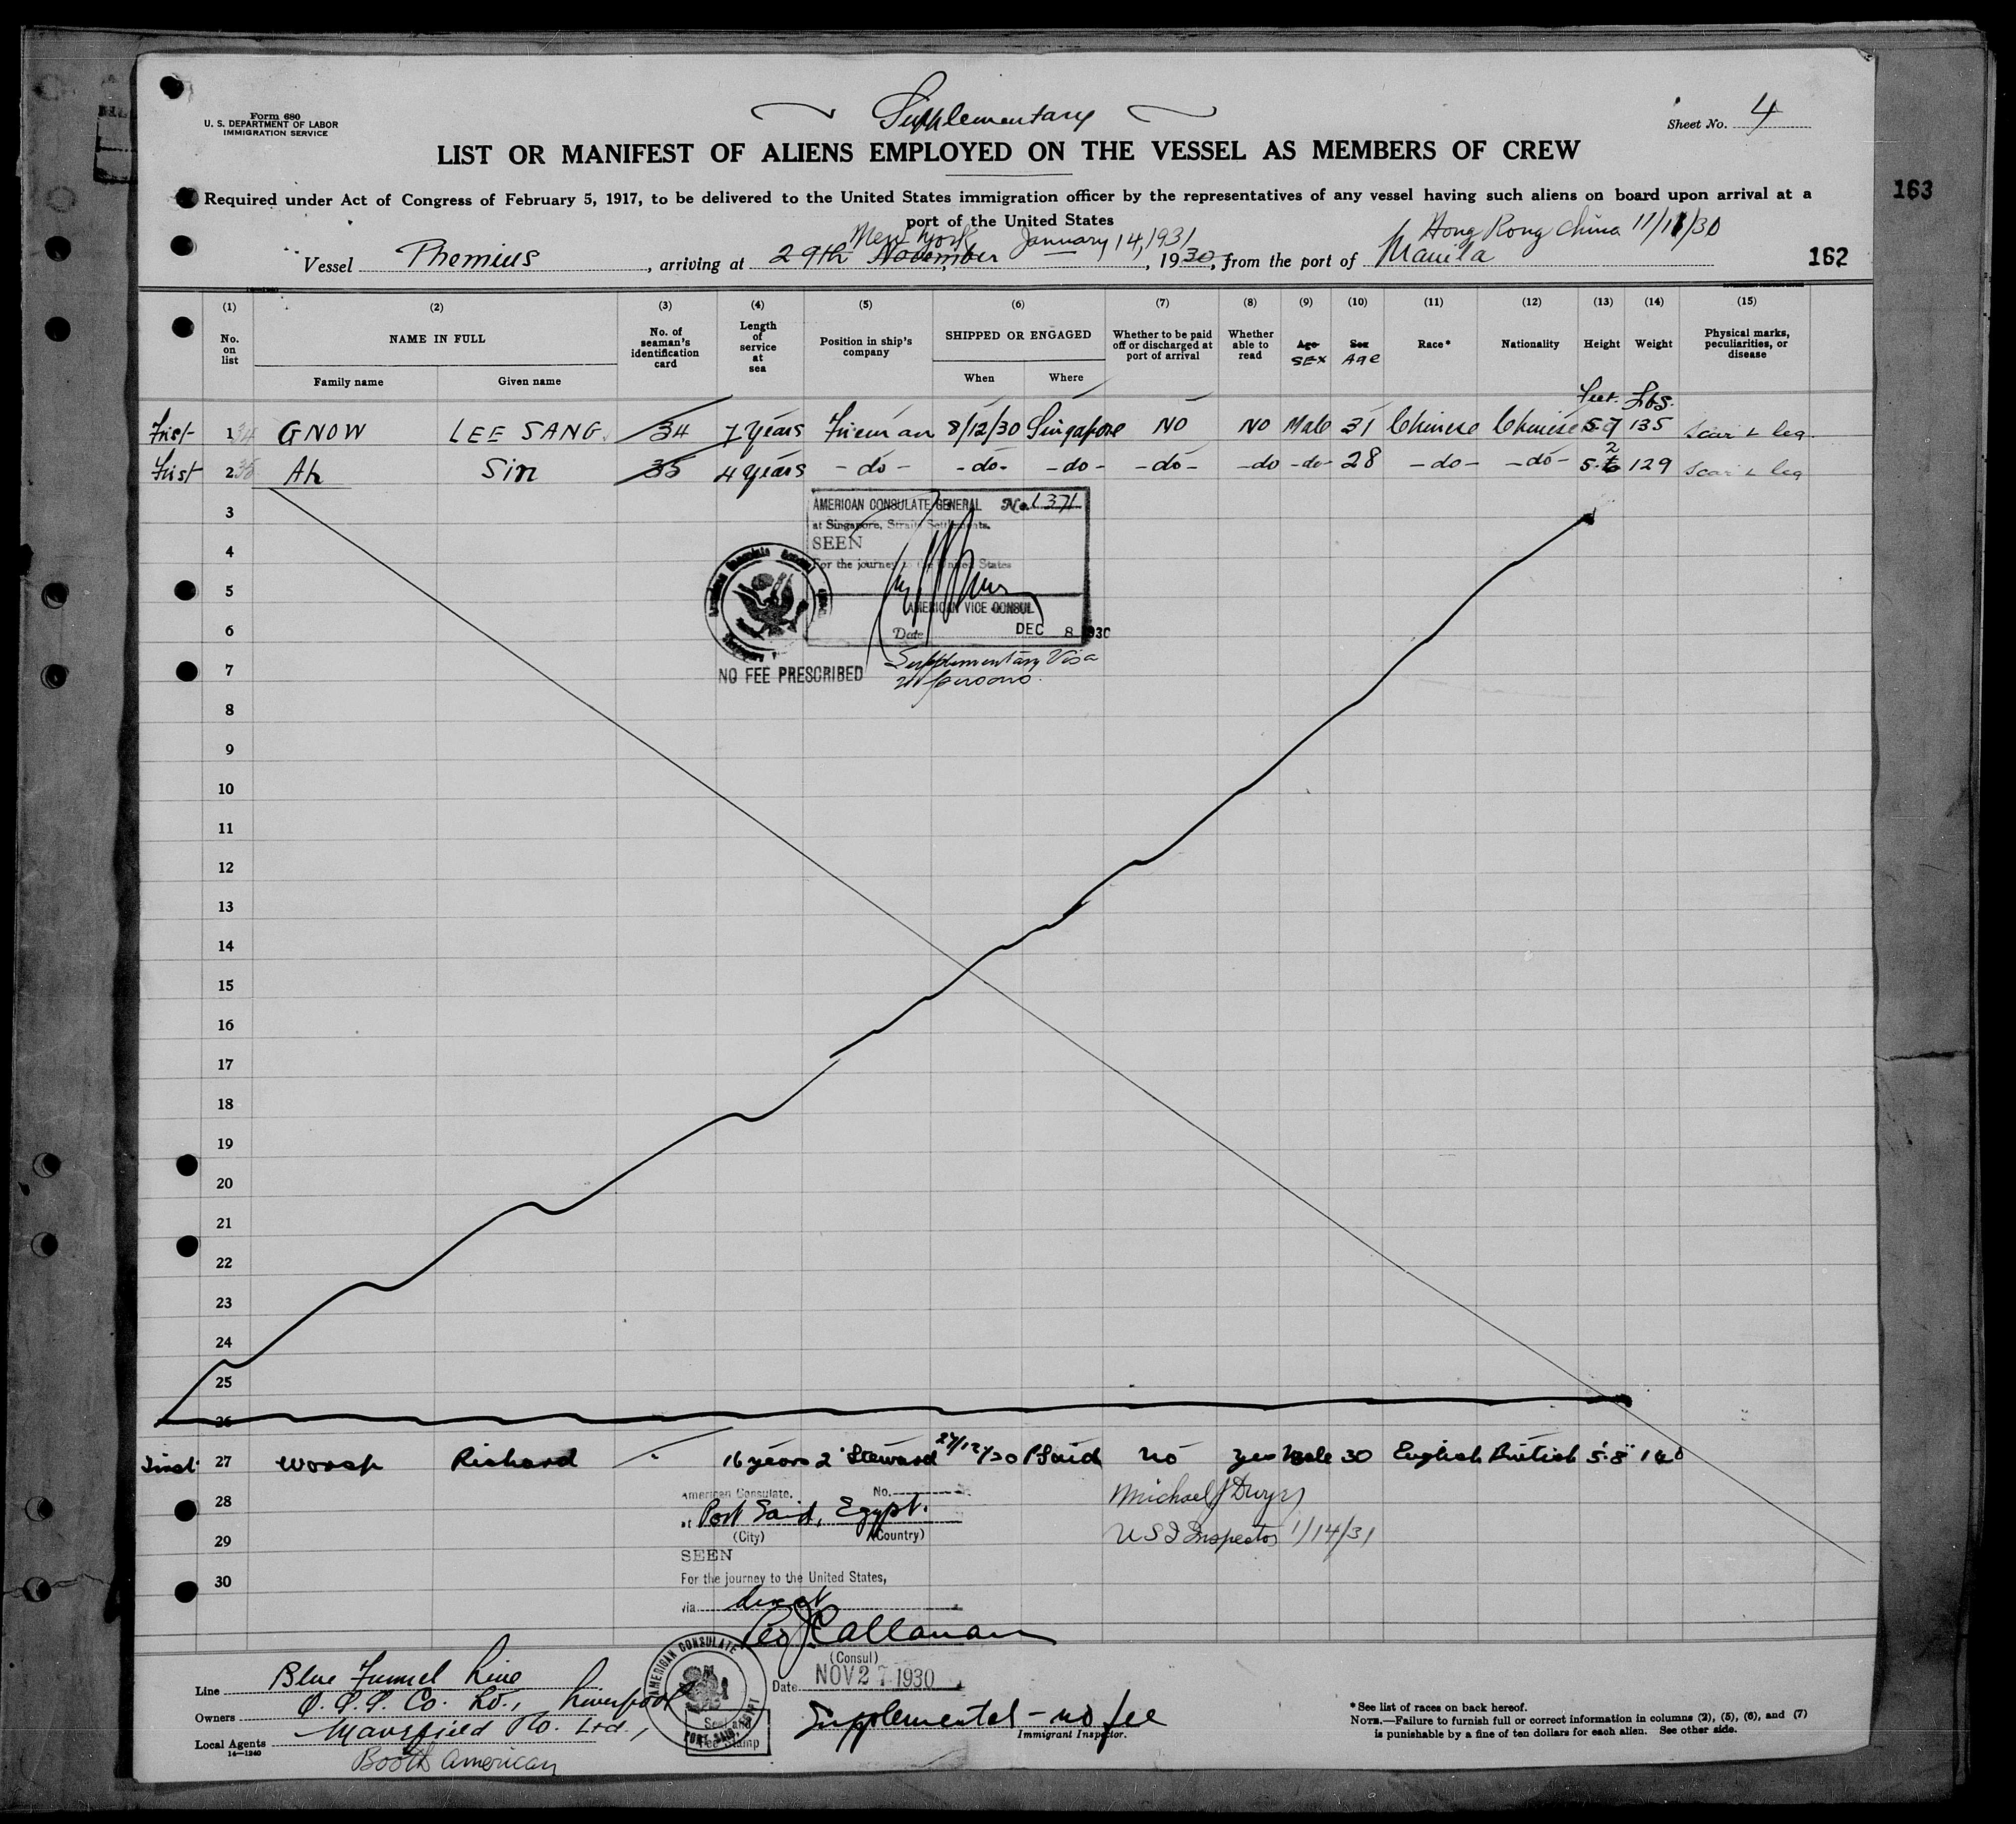 Form 680
U. S. DEPARTMENT OF LABOR
IMMIGRATION SERVICE
Supplementary
Sheet No. 4
LIST OR MANIFEST OF ALIENS EMPLOYED ON THE VESSEL AS MEMBERS OF CREW
163
Required under Act of Congress of February 5, 1917, to be delivered to the United States immigration officer by the representatives of any vessel having such aliens on board upon arrival at a
port of the United States
New York January 14, 1931 Hong Kong China 11/11/30
Vessel Phemius, arriving at 29th November, 1930, from the port of Manila 162
(1) (2) (3) (4) (5) (6) (7) (8) (9) (10) (11) (12) (13) (14) (15)
No. on list
NAME IN FULL
Family name Given name
No. of seaman's identification card
Length of service at sea
Position in ship's company
SHIPPED OR ENGAGED
When Where
Whether to be paid off or discharged at port of arrival
Whether able to read
Age SEX
Sex AGE
Race*
Nationality
Height
Weight
Physical marks, peculiarities, or disease
Feet. Lbs.
First 1 34 GNOW LEE SANG 34 7 years Fireman 8/12/30 Singapore NO NO Male 31 Chinese Chinese 5.7 135 Scar L leg
First 2 35 Ah Sin 35 4 years -do- -do- -do- -do- -do -do- 28 -do- -do- 129 Scar L leg
3
4
5
6
7
8
9
10
11
12
13
14
15
16
17
18
19
20
21
22
23
24
25
26
AMERICAN CONSULATE GENERAL No. 1371
at Singapore, Straits Settlements.
SEEN
For the journey to the United States
AMERICAN VICE CONSUL
Date DEC 8 1930
NO FEE PRESCRIBED
Supplementary Visa
First 27 Worsp Richard 16 years 2 Steward 27/12/30 PSaid No Yes Male 30 English British 5'8" 140
28
29
30
American Consulate, No.
at Port Said, Egypt.
(City) (Country)
SEEN
For the journey to the United States,
via direct
Geo J Callanan
(Consul)
Date NOV 27 1930
Michael J Dwyer
U S I Inspector 1/14/31
AMERICAN CONSULATE
PORT SAID, EGYPT
Seal and
Fee Stamp
Supplemental - no fee
Immigrant Inspector.
Line Blue Funnel Line
Owners O. S. S. Co. Ld., Liverpool
Local Agents Mansfield & Co. Ltd.,
14—1240
Booth American
* See list of races on back hereof.
NOTE.—Failure to furnish full or correct information in columns (2), (5), (6), and (7)
is punishable by a fine of ten dollars for each alien. See other side.